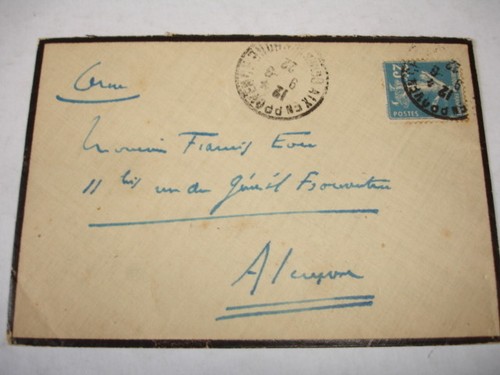 Orne
AIX EN PROVENCE
22
POSTES
Monsieur Francis
11 bis rue du Général Fromentin
Alençon